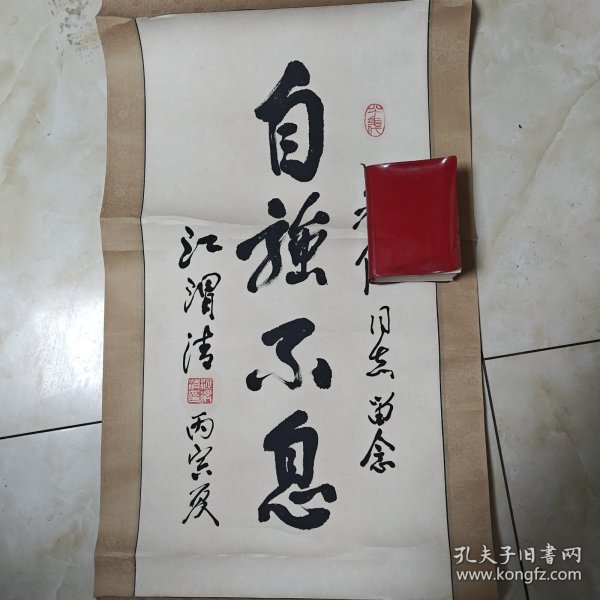 同志留念
自強不息
江渭清
丙寅夏
孔夫子旧书网
www.kongfz.com